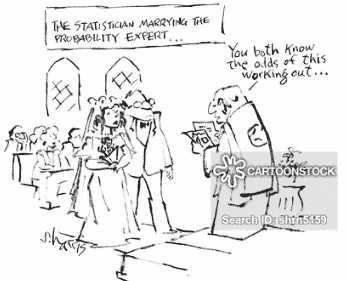 THE STATISTICIAN MARRYING THE
PROBABILITY EXPERT...
You both know
the odds of this
working out...
CARTOONSTOCK
.com
Search ID: shrn5159
S. Harris